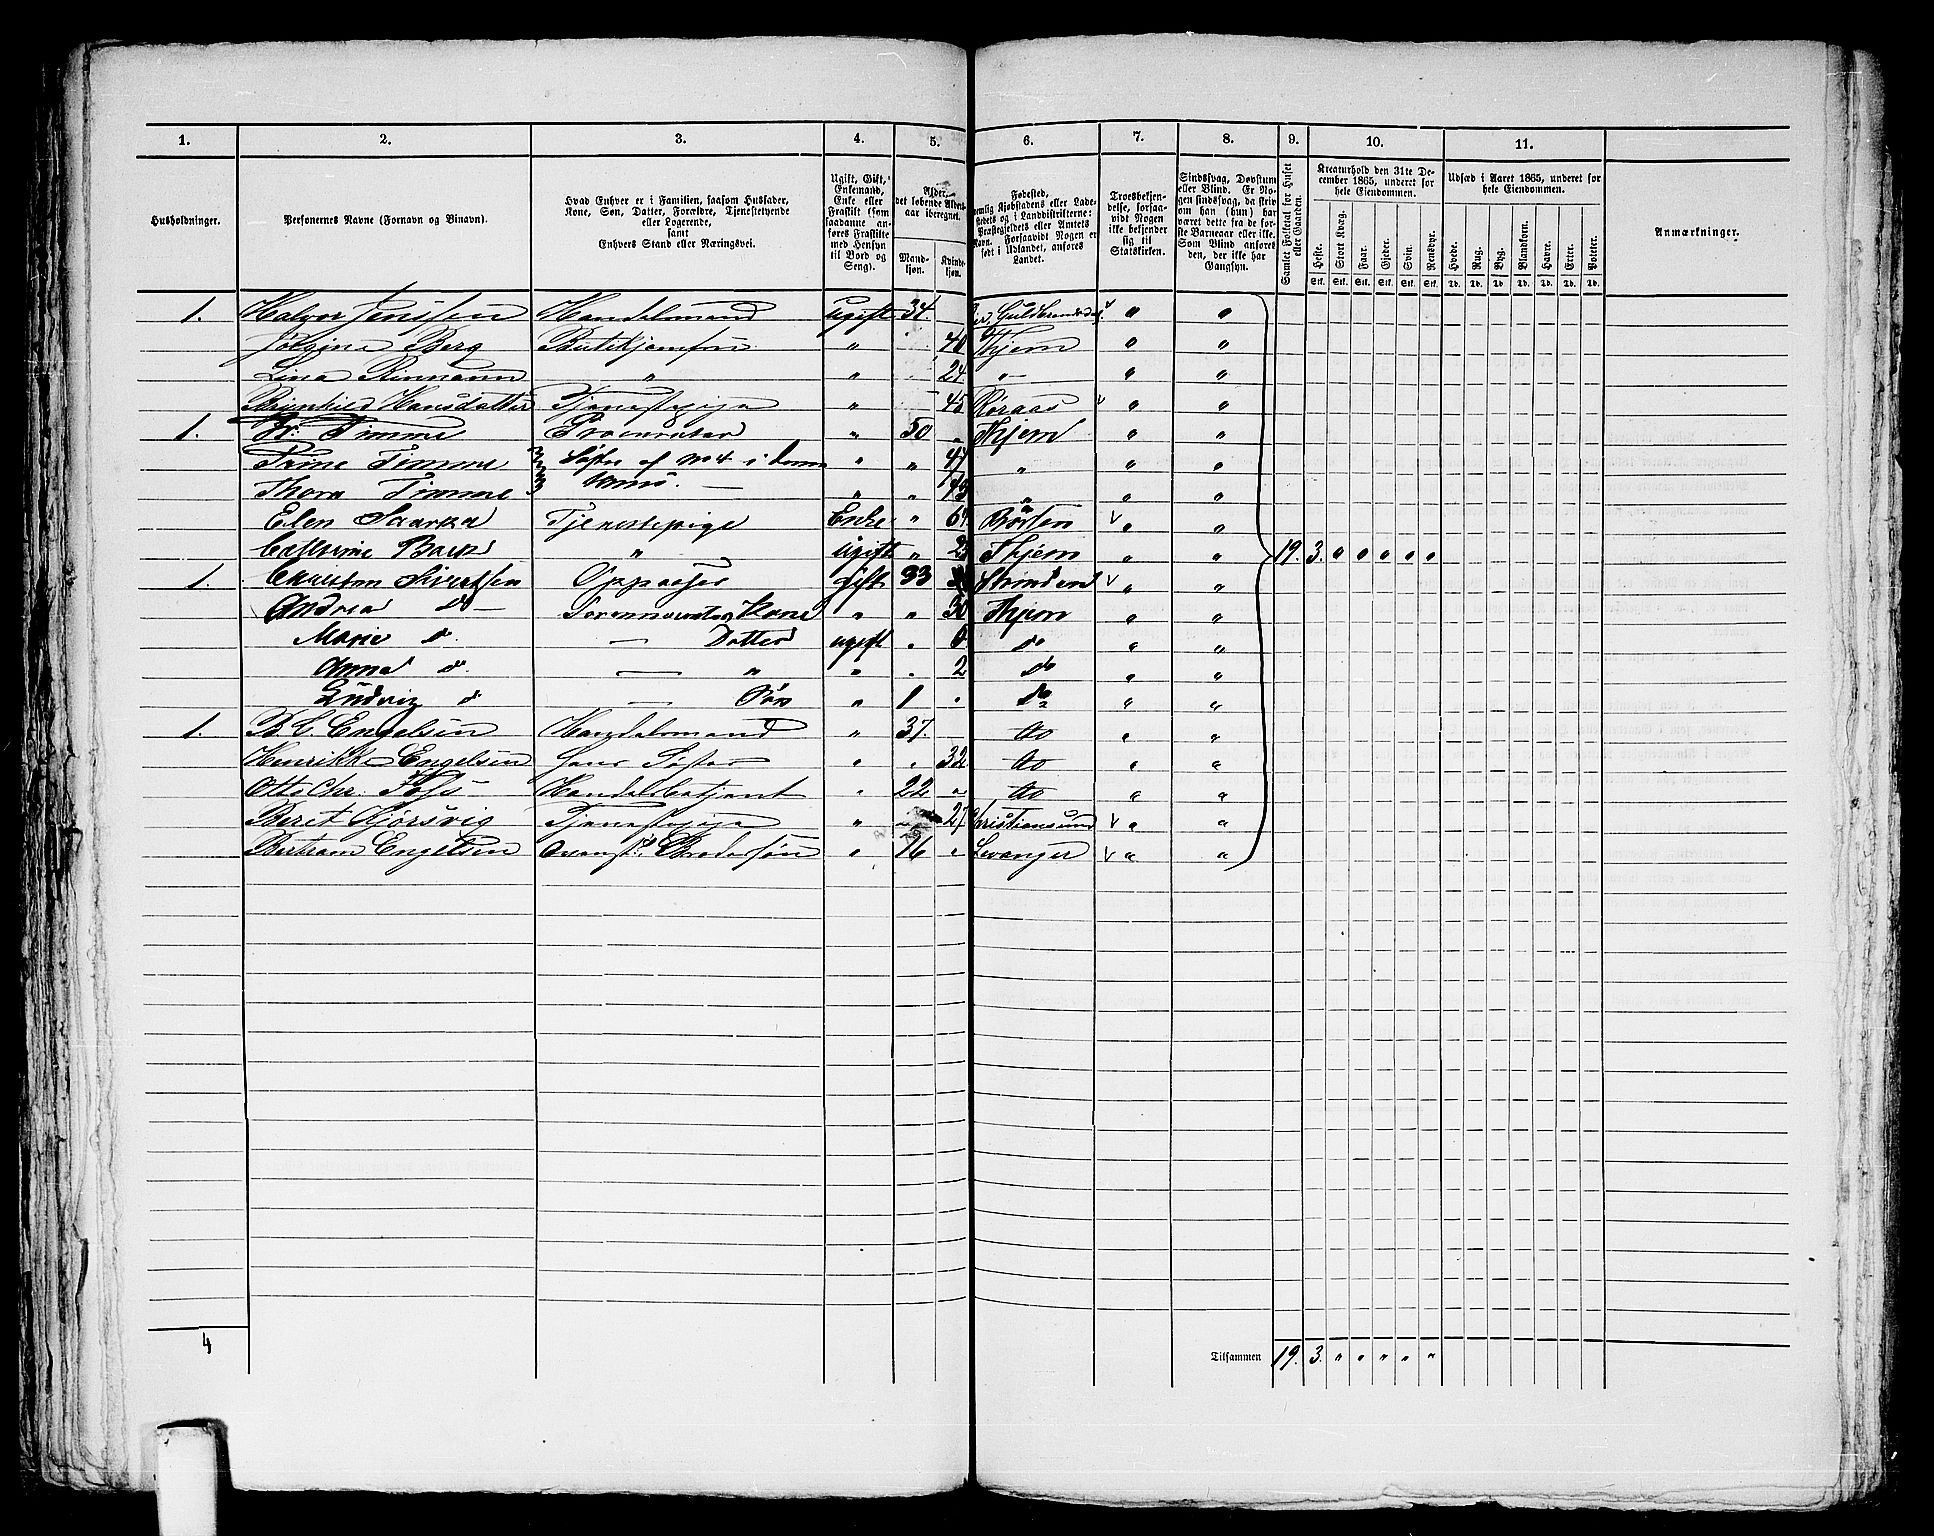 1. 2. 3. 4. 5. 6. 7. 8. 9. 10. 11.
Husholdninger.
Personernes Navne (Fornavn og Binavn).
Hvad Enhver er i Familien, saasom Husfader,
Kone, Søn, Datter, Forældre, Tjenestetyende
eller Logerende,
samt
Enhvers Stand eller Næringsvei.
Ugift, Gift,
Enkemand,
Enke eller
Fraskilt (som
saadanne an-
føres Fraskilte
med Hensyn
til Bord og
Seng).
Alder,
det løbende Alders-
aar iberegnet.
Mand-
kjøn.
Kvinde-
kjøn.
Fødested,
nemlig Kjøbstadens eller Lade-
stedets og i Landdistrikterne:
Præstegjeldets eller Annexets
Navn. Forsaavidt Nogen er
født i Udlandet, anføres
Landet.
Troesbekjen-
delse, forsaa-
vidt Nogen
ikke bekjender
sig til
Statskirken.
Sindssvag, Døvstum
eller Blind. Er No-
gen sindssvag, da skriv
om han (hun) har
været dette fra de før-
ste Barneaar eller ikke.
Som Blind anføres
den, der ikke har
Gangsyn.
Samlet Folketal for Huset
eller Gaarden.
Kreaturhold den 31te De-
cember 1865, underet for
hele Eiendommen.
Heste. Stort Kvæg. Faar. Gjeder. Svin. Rensdyr.
Stk. Stk. Stk. Stk. Stk. Stk.
Udsæd i Aaret 1865, underet for
hele Eiendommen.
Hvede. Rug. Byg. Blandkorn. Havre. Erter. Poteter.
Td. Td. Td. Td. Td. Td. Td.
Anmærkninger.
1. Halvor Jenssen Handelsmand ugift 34. Guldbrandsdal v " "
Berg " 40 Thjem " "
Lina Rinnann " " 24 " " "
Brynhild Hansdatter Tjenestepige " 45 Røraas v " "
1. Fr: Timme Procurator " 50 " Thjem " "
Trine Timme Søster af No 4 i denne " " " " "
Thora Timme Huus. " " " " "
Elen Tjenestepige Enke " 64 Børsen v " "
Cathrine " ugift " Thjem " " 19. 3. " " " " "
1. Christen Sivertsen Oppasser gift 33 Strinden v " "
Andrea do Kone " " 30 Thjem " "
Marie do. Datter ugift . 6 do " "
Anna do. " " . 2 do " "
Ludvig do Søn " 1 . do " "
1. B C Engelsen Handelsmand " 37. do " "
Henrikke Engelsen Hans Søster " . 32 do " "
Otto Chr. Handelsbetjent " 22 " do " "
Beret Kjørsvig Tjenestepige " 27 Christiansund v " "
Bertram Engelsen Brodersøn " 16 " Levanger v " "
4
Tilsammen 19. 3. " " " " "